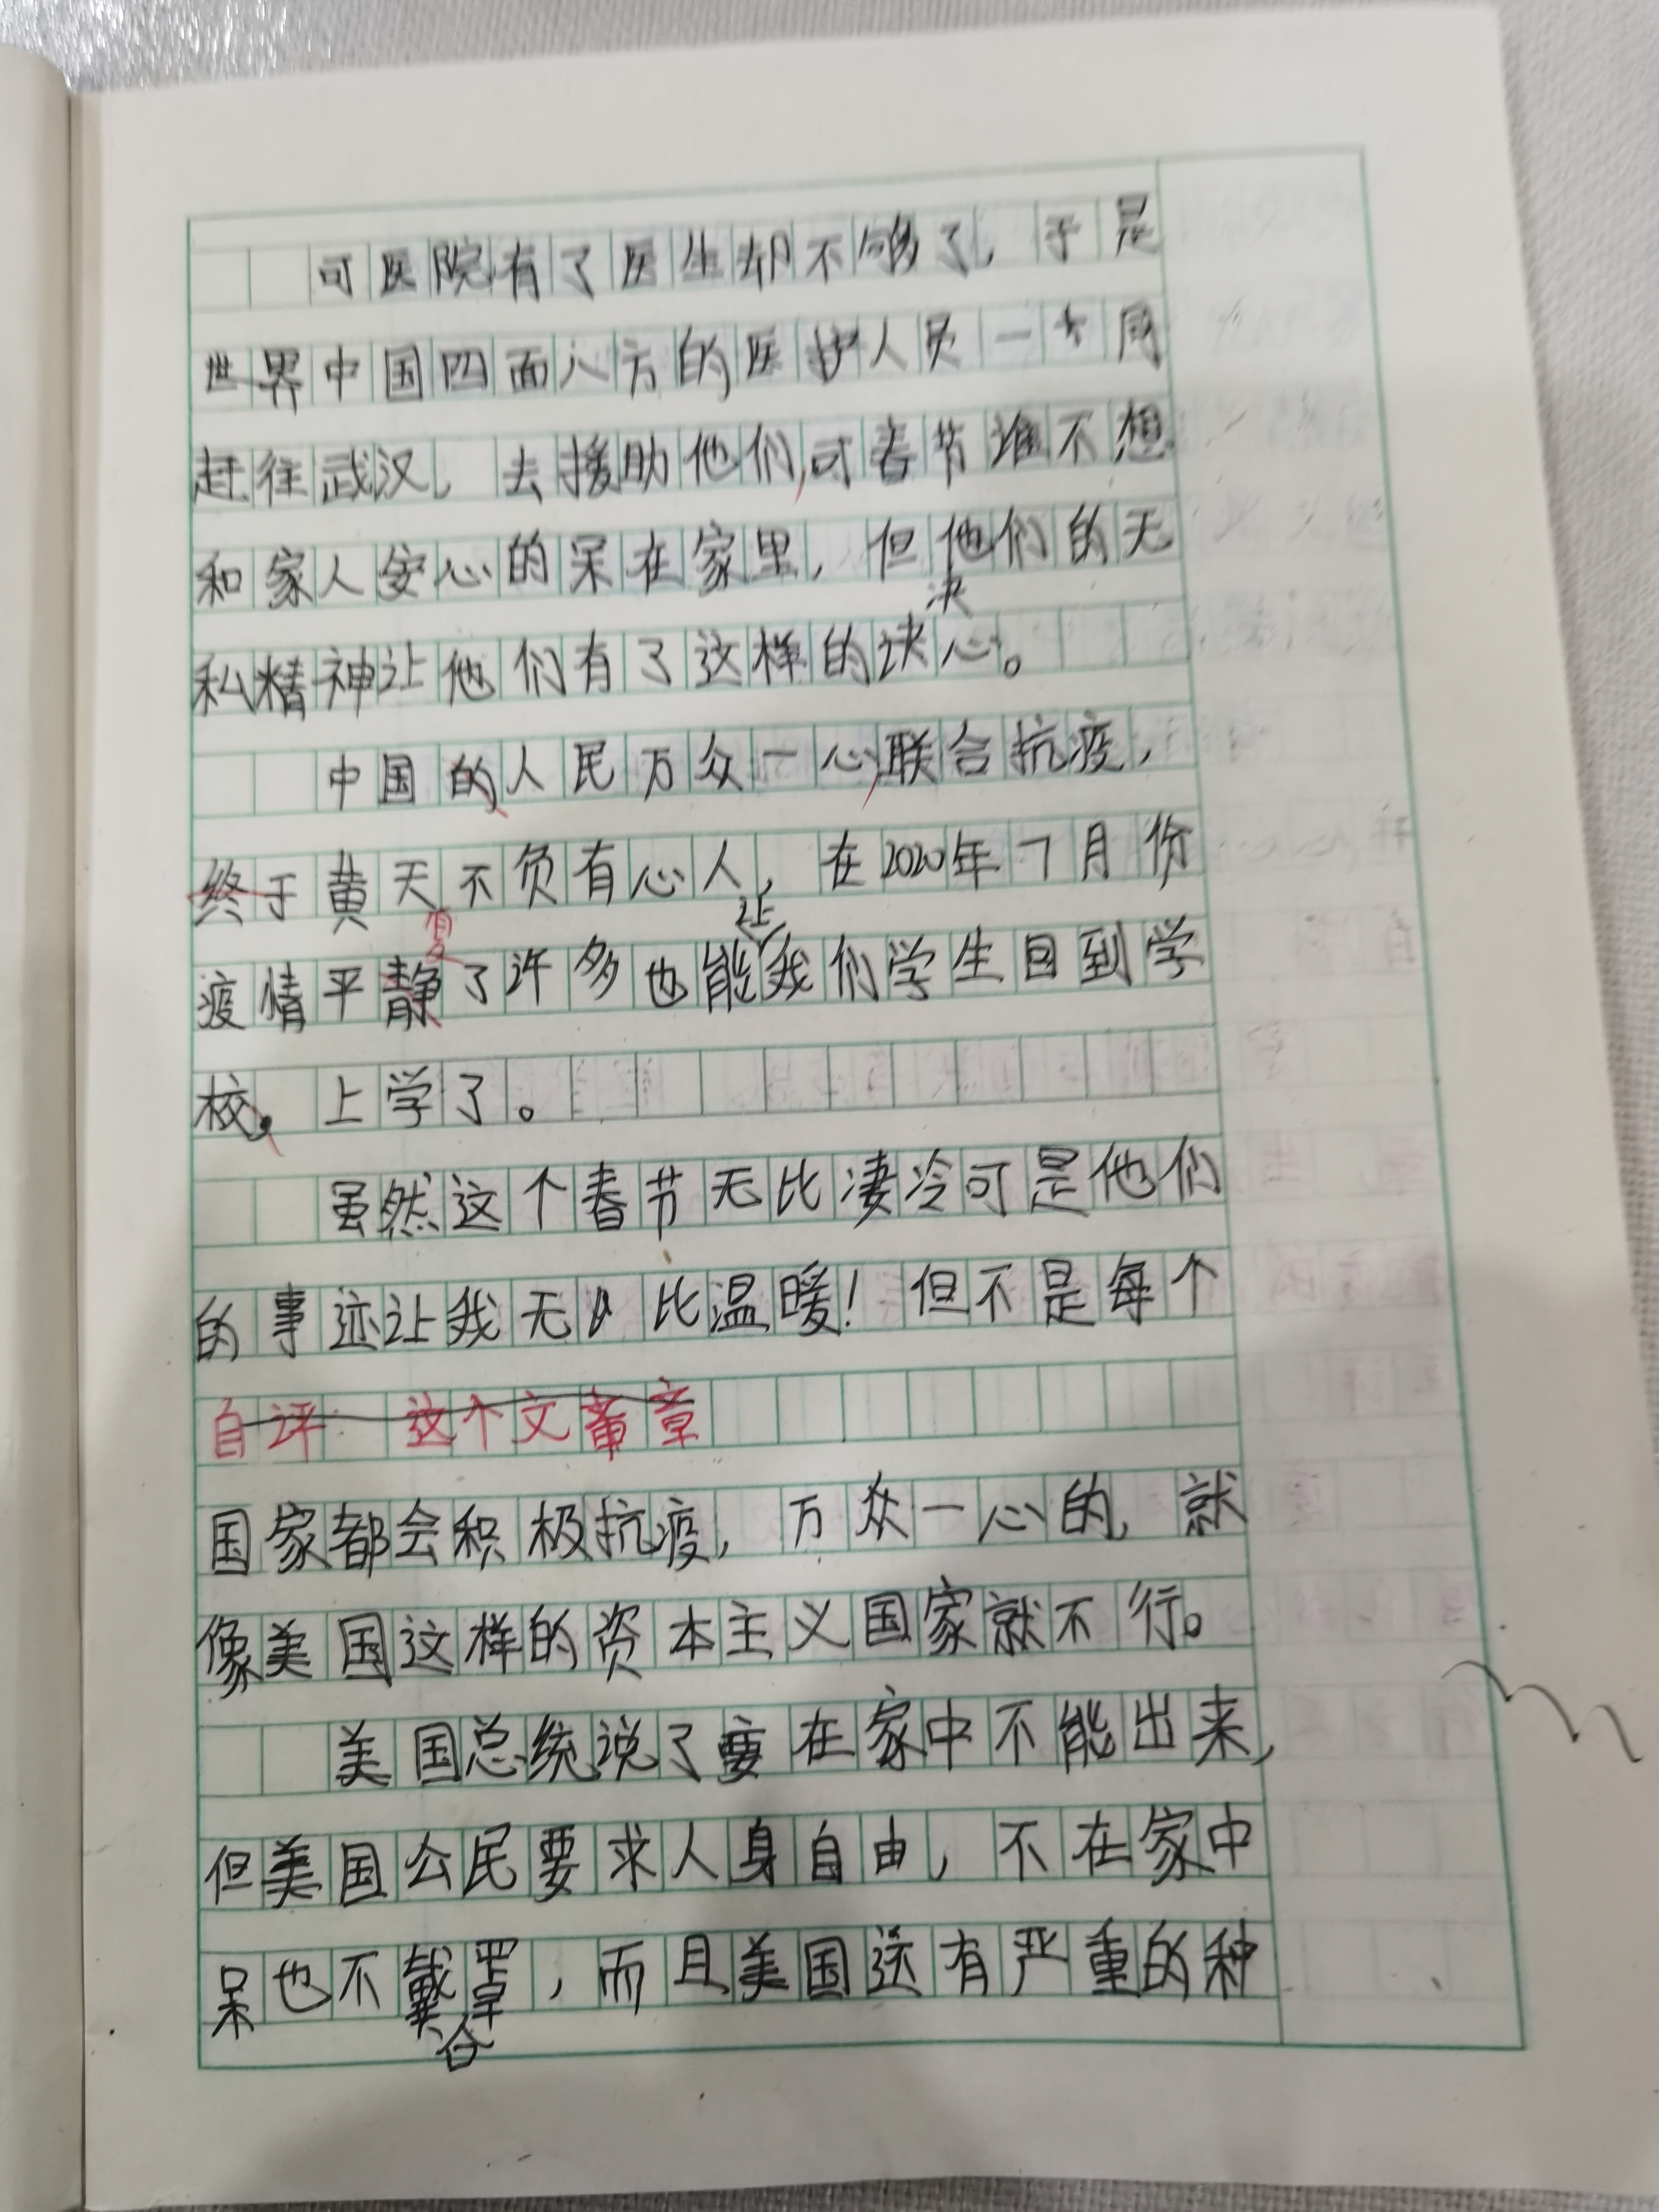 可医院有了医生却不够了，于是
世界中国四面八方的医护人员一大周
赶往武汉，去援助他们，可春节谁不想
和家人安心的呆在家里，但他们的无
决
私精神让他们有了这样的决心。
中国的人民万众一心，联合抗疫，
终于黄天不负有心人，在2020年7月份
复 让
疫情平静了许多也能我们学生回到学
校。上学了。
虽然这个春节无比凄冷可是他们
的事迹让我无比温暖！但不是每个
自评：这个文章章
国家都会积极抗疫，万众一心的，就
像美国这样的资本主义国家就不行。
美国总统说了要在家中不能出来，
但美国公民要求人身自由，不在家中
呆也不戴罩，而且美国还有严重的种